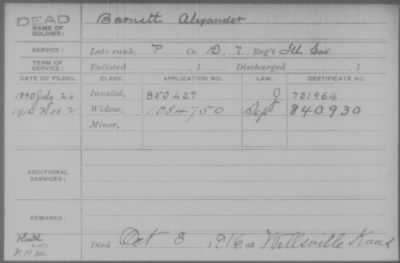 DEAD
NAME OF SOLDIER:
Barnett Alexander
SERVICE: Late rank, P Co. D, 7 Reg't Ill Cav
TERM OF SERVICE: Enlisted 1 Discharged 1
DATE OF FILING. CLASS. APPLICATION NO. LAW. CERTIFICATE NO.
1890 July 24 Invalid, 850427 J 721964
1916 Nov 2 Widow, 1084750 Sep 840930
Minor,
ADDITIONAL SERVICES:
REMARKS:
Died Oct 3, 1916, at Wellsville Kans